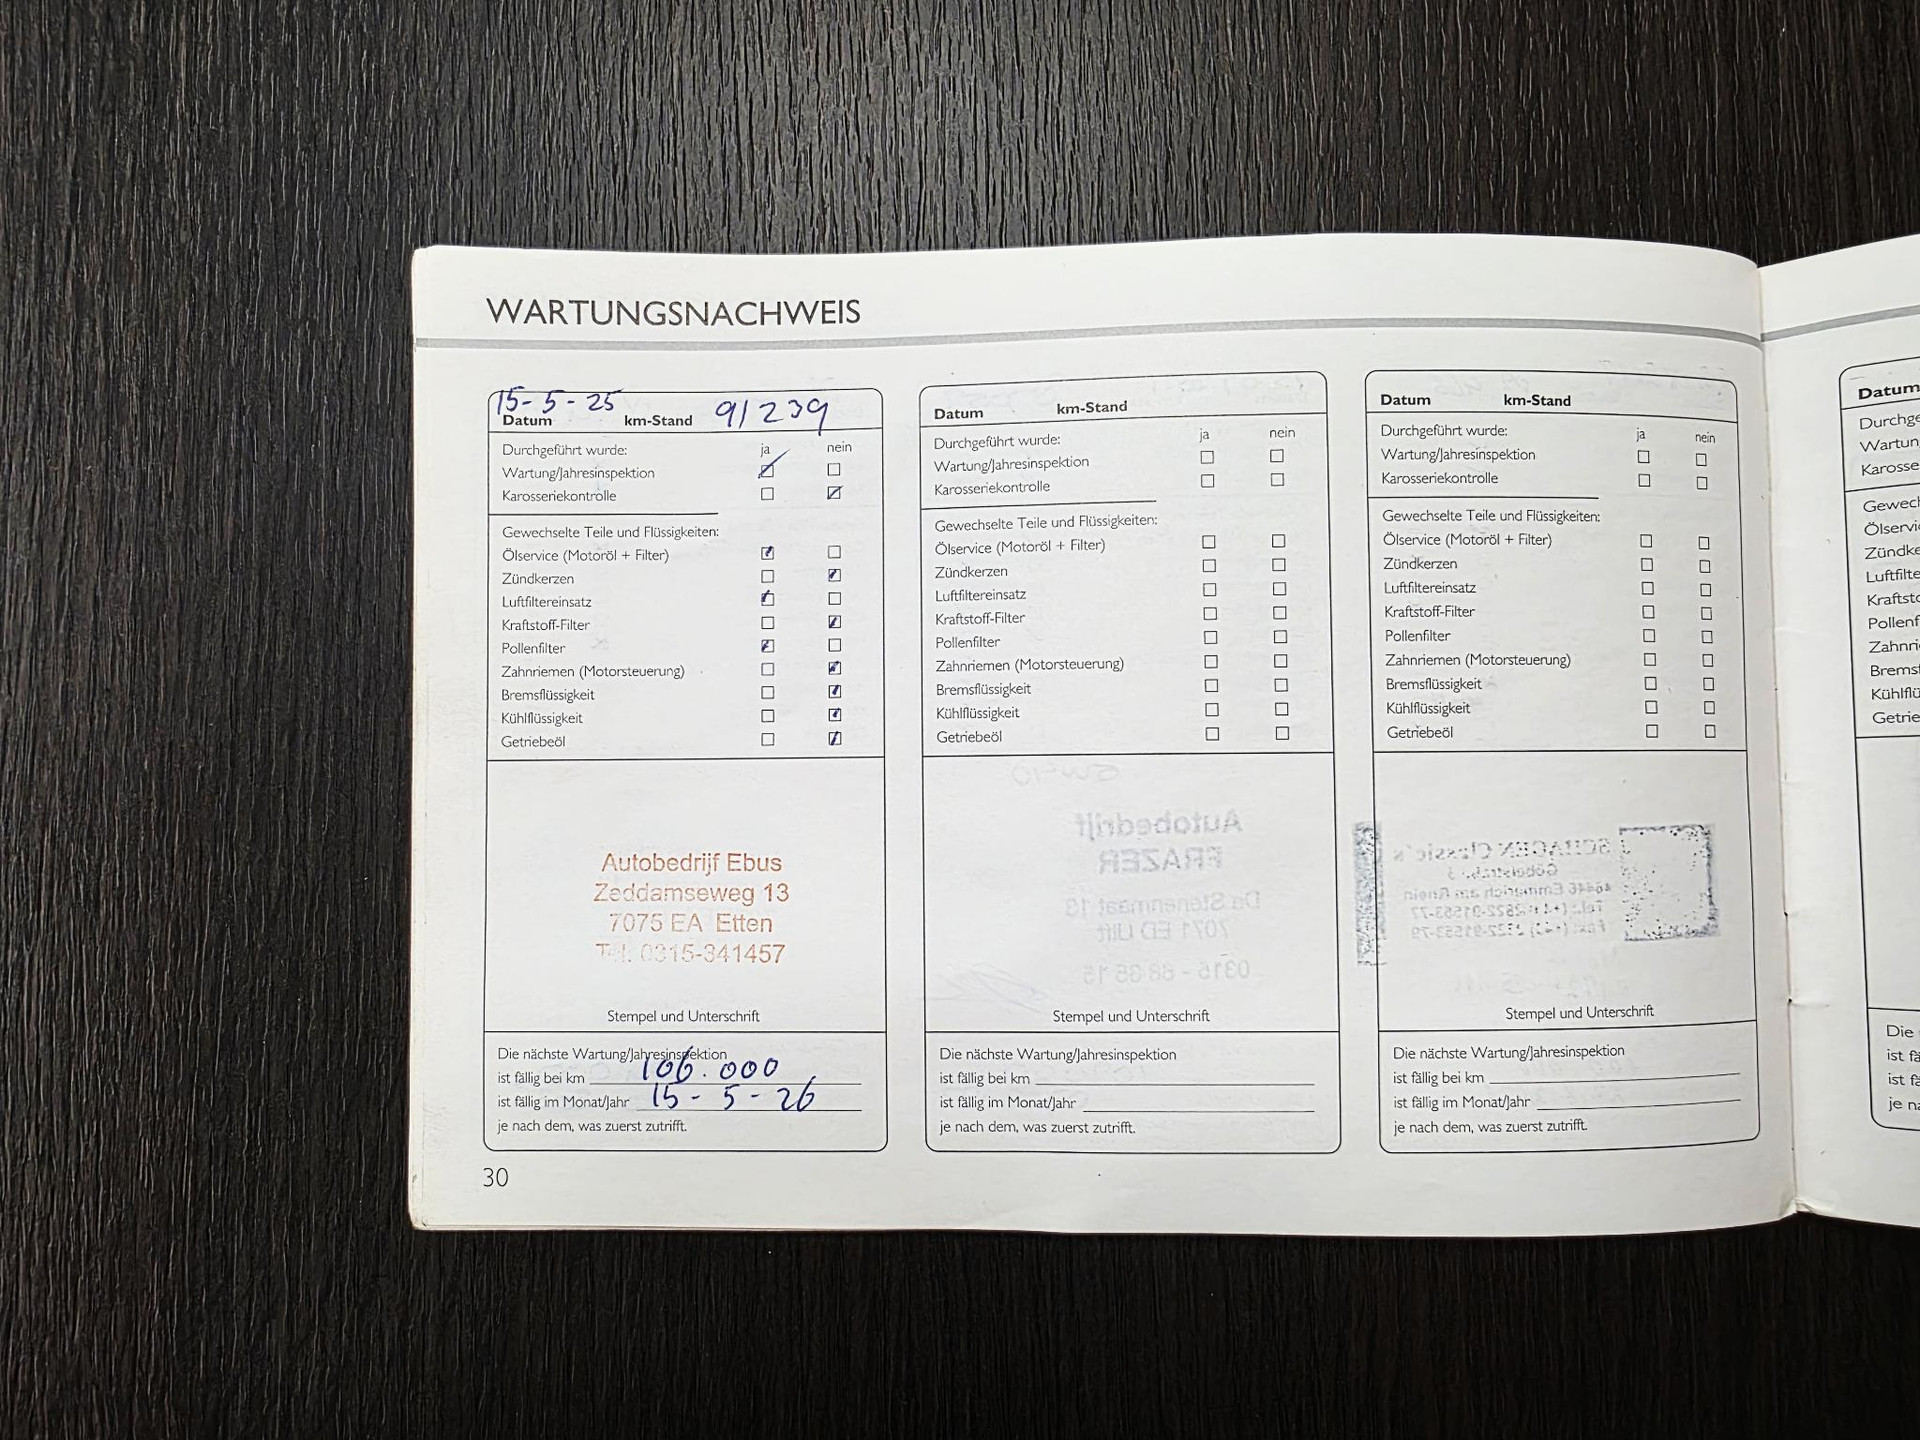 WARTUNGSNACHWEIS
15-5-25 91239
Datum km-Stand
Durchgeführt wurde: ja nein
Wartung/Jahresinspektion
Karosseriekontrolle
Gewechselte Teile und Flüssigkeiten:
Ölservice (Motoröl + Filter)
Zündkerzen
Luftfiltereinsatz
Kraftstoff-Filter
Pollenfilter
Zahnriemen (Motorsteuerung)
Bremsflüssigkeit
Kühlflüssigkeit
Getriebeöl
Autobedrijf Ebus
Zeddamseweg 13
7075 EA Etten
Tel: 0315-341457
Stempel und Unterschrift
Die nächste Wartung/Jahresinspektion
ist fällig bei km 106.000
ist fällig im Monat/Jahr 15-5-26
je nach dem, was zuerst zutrifft.
30
Datum km-Stand
Durchgeführt wurde: ja nein
Wartung/Jahresinspektion
Karosseriekontrolle
Gewechselte Teile und Flüssigkeiten:
Ölservice (Motoröl + Filter)
Zündkerzen
Luftfiltereinsatz
Kraftstoff-Filter
Pollenfilter
Zahnriemen (Motorsteuerung)
Bremsflüssigkeit
Kühlflüssigkeit
Getriebeöl
Autobedrijf
FRAZER
7071 ED Ulft
Stempel und Unterschrift
Die nächste Wartung/Jahresinspektion
ist fällig bei km
ist fällig im Monat/Jahr
je nach dem, was zuerst zutrifft.
Datum km-Stand
Durchgeführt wurde: ja nein
Wartung/Jahresinspektion
Karosseriekontrolle
Gewechselte Teile und Flüssigkeiten:
Ölservice (Motoröl + Filter)
Zündkerzen
Luftfiltereinsatz
Kraftstoff-Filter
Pollenfilter
Zahnriemen (Motorsteuerung)
Bremsflüssigkeit
Kühlflüssigkeit
Getriebeöl
SCHAGEN Classic's
46446 Emmerich am Rhein
Stempel und Unterschrift
Die nächste Wartung/Jahresinspektion
ist fällig bei km
ist fällig im Monat/Jahr
je nach dem, was zuerst zutrifft.
Datum